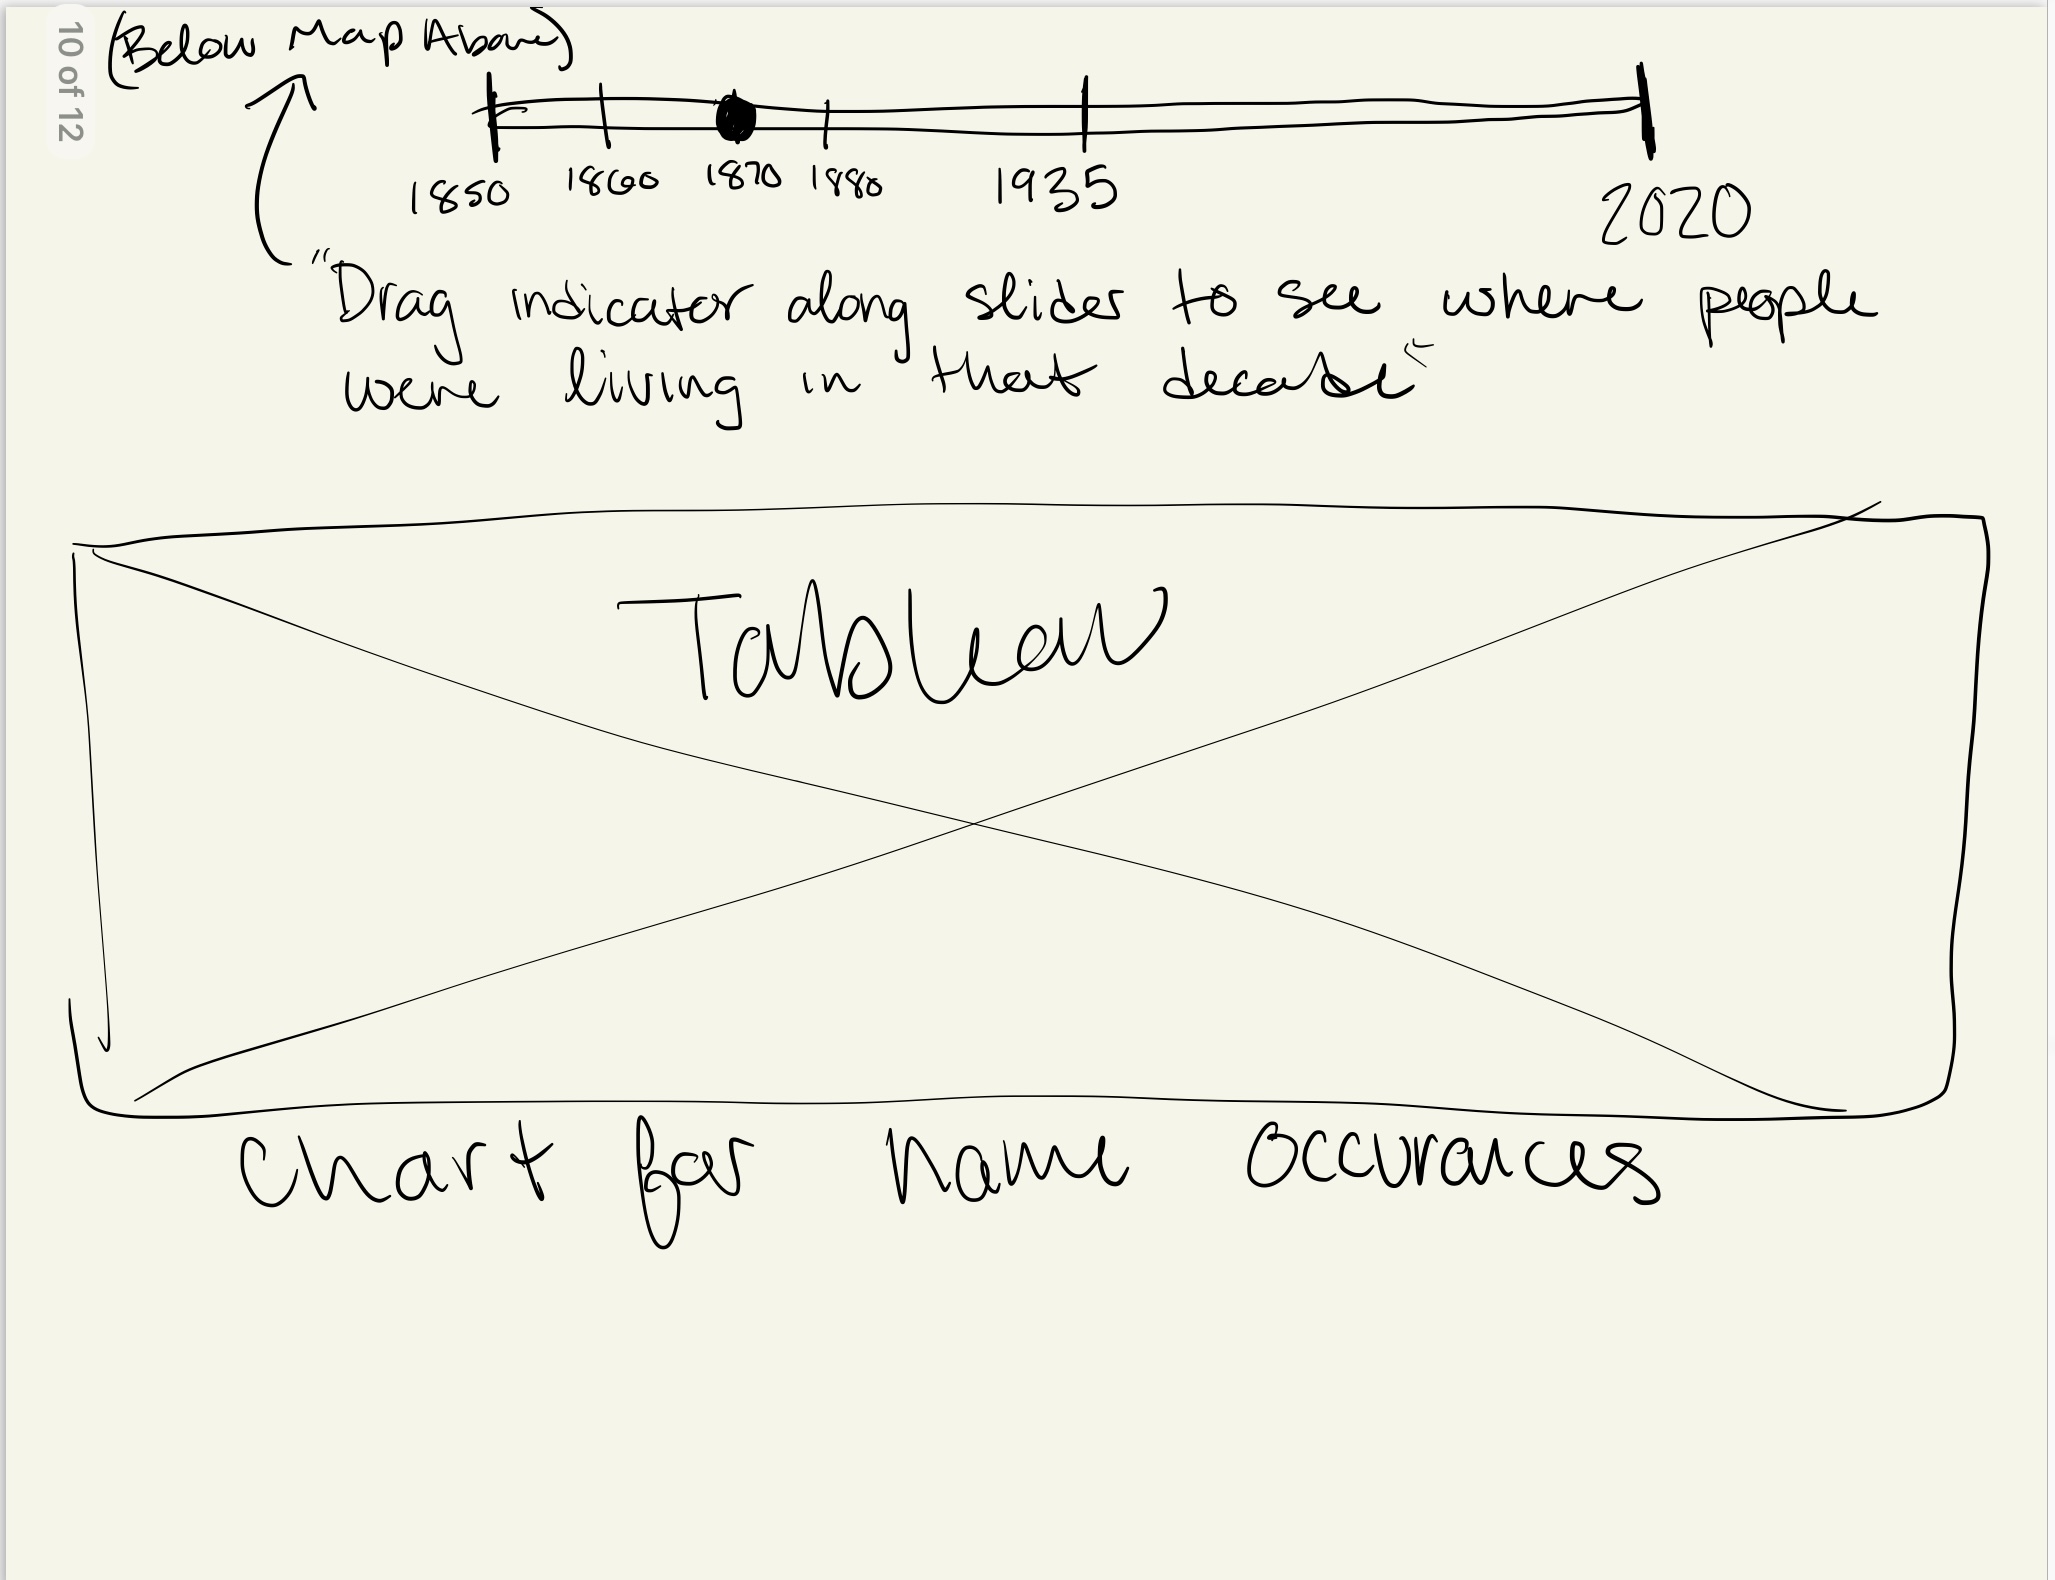 10 of 12
(Below Map Above)
1850 1860 1870 1880 1935 2020
"Drag indicator along slider to see where people
were living in that decade"
Tableau
Chart for name occurances